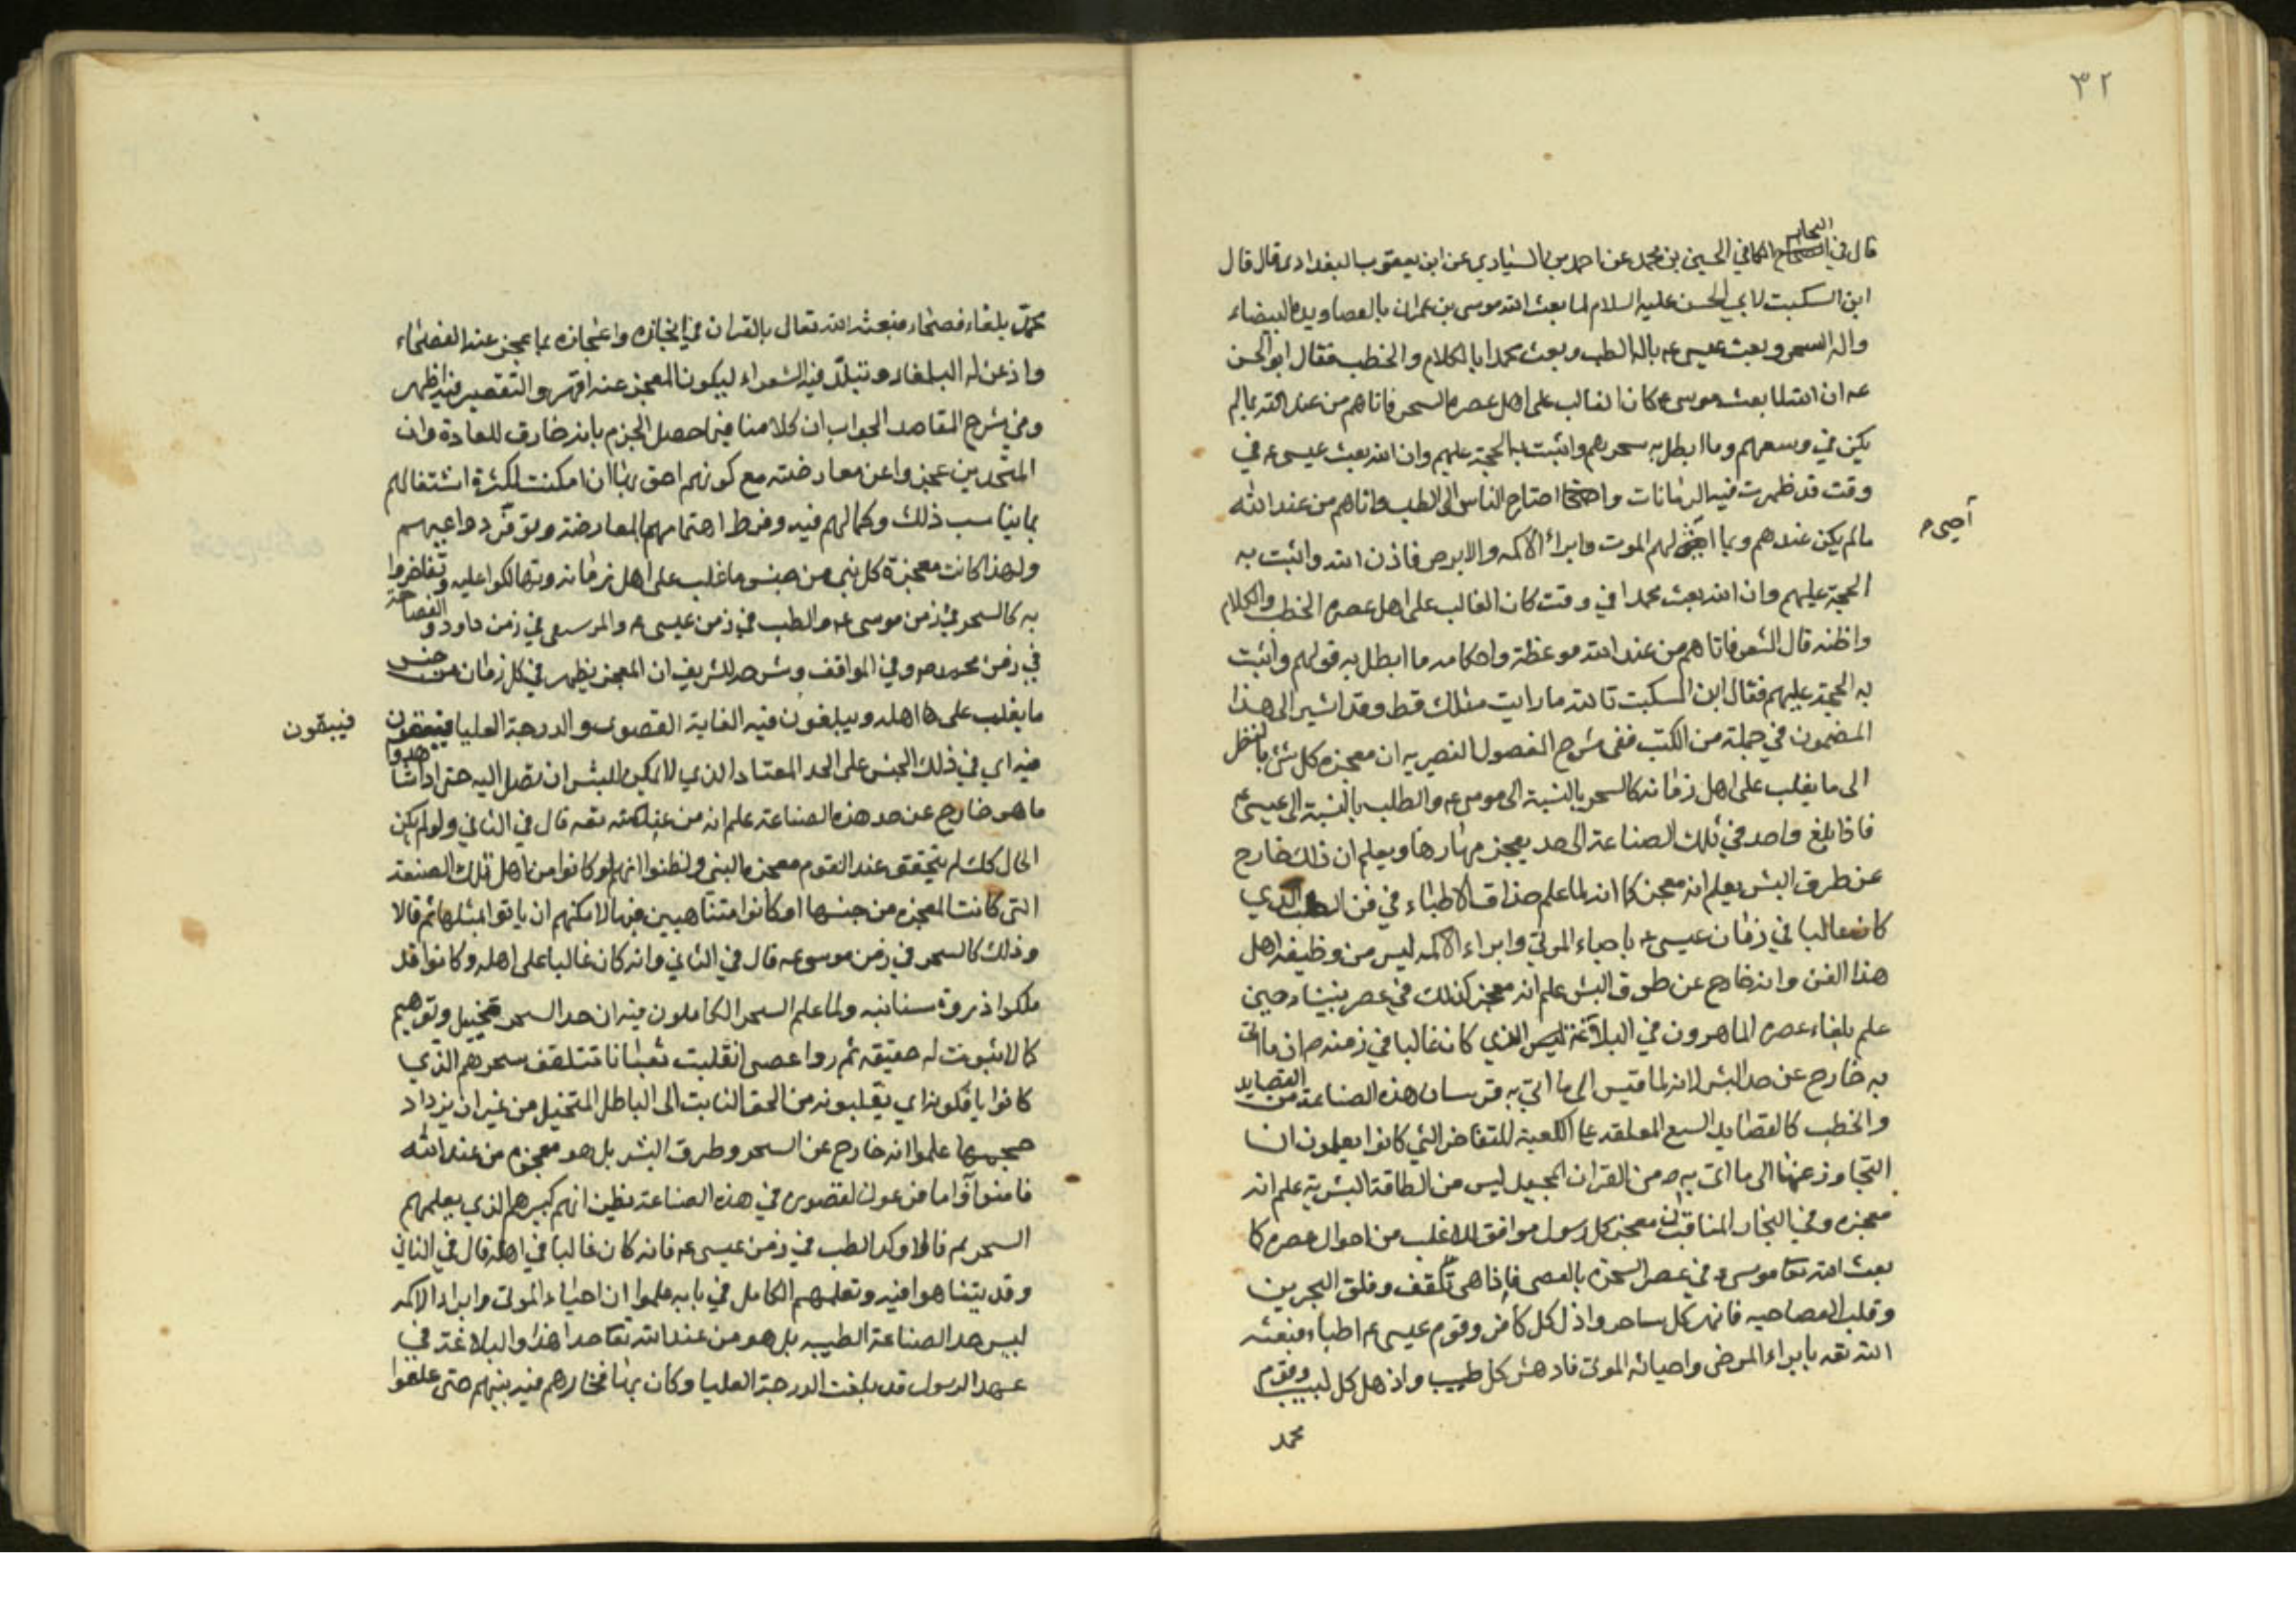 ٣٢
البحار
قال في الكافي الحسين بن محمد عن احمد بن السياري عن ابن يعقوب البغدادي قال قال
ابن السكيت لابي الحسن عليه السلام لما بعث الله موسى بن عمران بالعصا ويده البيضاء
والة السحر وبعث عيسى ع بالة الطب وبعث محمدا بالكلام والخطب فقال ابو الحسن
ع ان الله لما بعث موسى ع كان الغالب على اهل عصره السحر فاتاهم من عند الله بما لم
يكن في وسعهم وما ابطل به سحرهم واثبت به الحجة عليهم وان الله بعث عيسى ع في
وقت قد ظهرت فيه الزمانات واحتاج الناس الى الطب فاتاهم من عند الله
مالم يكن عندهم وبما احيى لهم الموت وابراء الاكمه والابرص فاذن الله واثبت به
أحيى م
الحجة عليهم وان الله بعث محمدا في وقت كان الغالب على اهل عصره الخطب والكلام
واظنه قال الشعر فاتاهم من عند الله موعظة واحكامه ما ابطل به قولهم واثبت
به الحجة عليهم فقال ابن السكيت تالله ما رايت مثلك قط وقد اشير الى هذا
المضمون في جملة من الكتب ففى شرح الفصول النصيريه ان معجزه كل بالنظر
الى ما يغلب على اهل زمانه كالسحر بالنسبة الى موسى ع والطلب بالنسبة الى عيسى ع
فاذا بلغ واحد في تلك الصناعة الى حد يعجز مهارها ويعلم ان ذلك خارج
عن طرق البشر يعلم انه معجز كما انه لما علم حذاق الاطباء في فن الطب الذي
كان غالبا في زمان عيسى ع باحياء الموتى وابراء الاكمه ليس من وظيفه اهل
هذا الفن وانه خارج عن طوق البشر علم انه معجز كذلك في عصر نبينا ص حين
علم بلغاء عصره الماهرون في البلاغة الذي كان غالبا في زمنه ص ان ما اتى
به خارج عن حد البشر لانه لما قيس الى ما اتي به فرسان هذه الصناعة من القصايد
والخطب كالقصايد السبع المعلقه على الكعبة للتفاخر التي كانوا يعلمون ان
التجاوز عنها الى ما اتى به ص من القران المجيد ليس من الطاقة البشرية علم انه
معجزه وفي البحار المناقب ان معجز كل رسول موافق للاغلب من احوال عصره كما
بعث الله تعا موسى ع في عصر السحره بالعصى فاذا هى تلقف وفلق البحر يبسا
وقلب العصا حيه فانهر كل ساحر واذل كل كافر وقوم عيسى ع اطباء فبعثه
الله تعه بابراء المرضى واحيائه الموتى فادهش كل طبيب واذهل كل لبيب وقوم
محمد
محمد بلغاء فصحاء فبعثه الله تعالى بالقران في ايجازه واعجازه بما عجز عند الفصحاء
واذعن له البلغاء وتبلّد فيه الشعراء ليكون العجز عنه اقهر والتقصير فيه اظهر
وفي شرح المقاصد الجواب ان كلامنا فيما حصل الجزم بانه خارق للعادة وان
المتحدين عجزوا عن معارضته مع كونهم احق بها ان امكنت لكثرة اشتغالهم
بما يناسب ذلك وكمالهم فيه وفرط اهتمامهم بالمعارضة وتوفّر دواعيهم
ولهذا كانت معجزة كل نبي من جنس ما غلب على اهل زمانه وتهالكوا عليه وتفاخروا
به كالسحر في زمن موسى ع والطب في زمن عيسى ع والموسيقى في زمن داود والفصاحة
في زمن محمد ص وفي المواقف وشرحه للشريف ان المعجز يظهر في كل زمان من جنس
ما يغلب على اهله ويبلغون فيه الغاية القصوى والدرجة العليا فيبقون
فيبقون
فيه اي في ذلك الجنس على الحد المعتاد الذي لا يمكن للبشر ان يصل اليه حتى اذا شاهدوا
ما هو خارج عن حد هذه الصناعة علم انه من عند الله تعه قال في الثاني ولو لم يكن
الحال كك لم يتحقق عند القوم معجزة النبي ولظنوا انهم لو كانوا من اهل تلك الصنعة
التى كانت المعجزه من جنسها او كانوا متناهيين فيها لامكنهم ان ياتوا بمثلها ثم قالا
وذلك كالسحر في زمن موسى ع قال في الثاني وانه كان غالبا على اهله وكانوا قد
ملكوا ذروة سنانيه ولما علم السحر الكاملون فيه ان حد السحر تخييل وتوهيم
كما لا ثبوت له حقيقه ثم روا عصى انقلبت ثعبانا تتلقف سحرهم الذي
كانوا يافكونه اي يقلبونه من الحق الثابت الى الباطل المتخيل من غير ان يزداد
حجمها علموا انه خارج عن السحر وطرق البشر بل هو معجزه من عند الله
فامنوا واما فرعون لقصوره في هذه الصناعة يظن انهم كبيرهم الذي يعلمهم
السحر ثم قالا وكذا الطب في زمن عيسى ع فانه كان غالبا في اهله قال في الثاني
وقد يتناهوا فيه وتعلمهم الكامل في بابه علموا ان احياء الموتى وابراء الاكمه
ليس حد الصناعة الطبيه بل هو من عند الله تعا هذا والبلاغة في
عهد الرسول قد بلغت الدرجة العليا وكان بها فخارهم فيه بينهم حتى علقوا